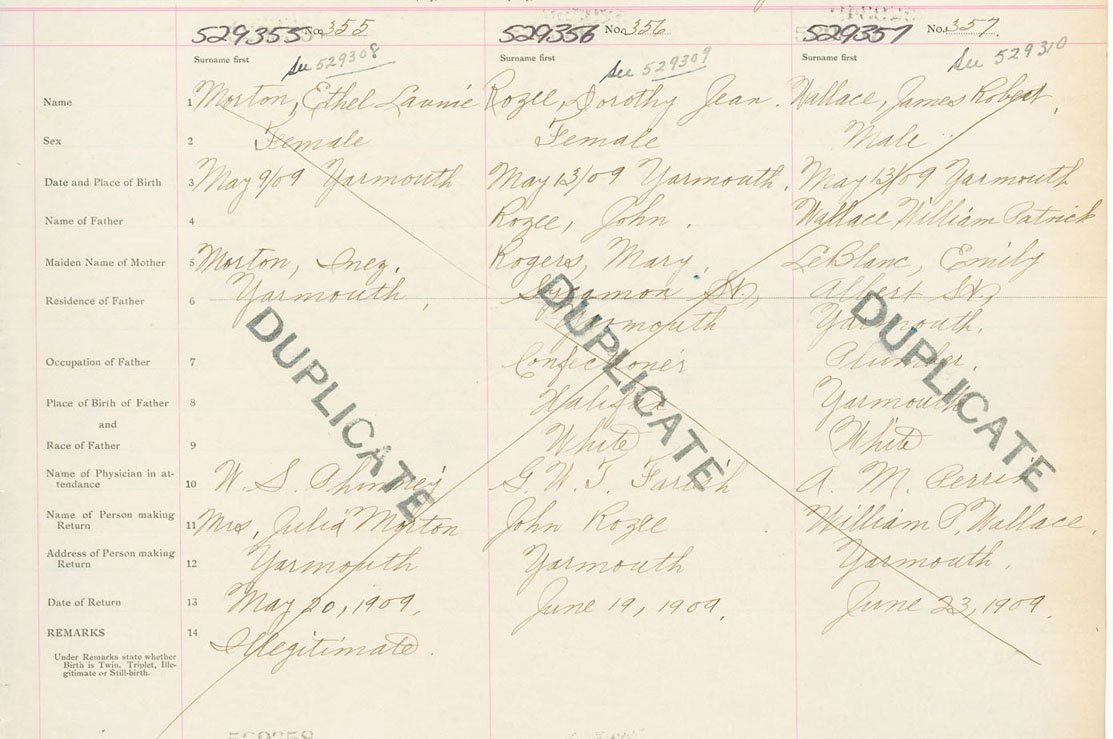 529355 No. 355 529356 No. 356 529357 No. 357.
Surname first Surname first Surname first
See 529308 See 529309 See 529310
Name 1 Morton, Ethel Launie Rozee, Dorothy Jean. Wallace, James Robert,
Sex 2 Female Female Male
Date and Place of Birth 3 May 9/09 Yarmouth May 13/09 Yarmouth. May 13/09 Yarmouth
Name of Father 4 Rozee, John. Wallace, William Patrick
Maiden Name of Mother 5 Morton, Inez. Rogers, Mary, LeBlanc, Emily
Residence of Father 6 Yarmouth, St., Albert St,
Yarmouth Yarmouth.
Occupation of Father 7 Confectioner Plumber.
Place of Birth of Father 8 Halifax Yarmouth
and
Race of Father 9 White White
Name of Physician in at-
tendance 10 W. S. Phinney G. W. T. Farish A. M. Perrin
Name of Person making
Return 11 Mrs. Julia Morton John Rozee William P. Wallace.
Address of Person making
Return 12 Yarmouth Yarmouth Yarmouth.
Date of Return 13 May 20, 1909. June 19, 1909. June 23, 1909.
REMARKS 14 Illegitimate.
Under Remarks state whether
Birth is Twin, Triplet, Ille-
gitimate or Still-birth.
DUPLICATE
DUPLICATE
DUPLICATE
529358